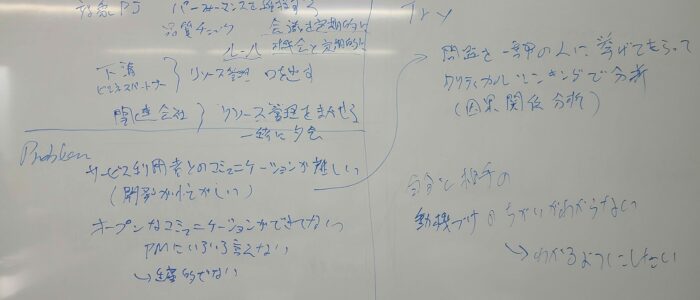 パフォーマンスを
品質チェック
会議を定期的に
ルール
機会を定期的に
下請
ビジネスパートナー
リソース管理 口を出す
関連会社
リソース管理をまかせる
一緒に夕会
Problem
サービス利用者とのコミュニケーションが難しい
(開発が忙がしい)
オープンなコミュニケーションができてない
PMにいろいろ言えない
↳生産的でない
Try
問題を 一番の人に 挙げてもらって
クリティカルシンキングで分析
(因果関係分析)
自分と相手の
動機づけのちがいがわからない
↳わかるようにしたい